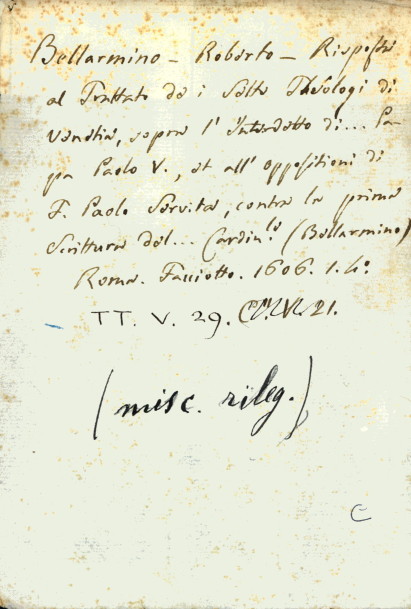 Bellarmino - Roberto - Risposta
al Trattato de i Sette Theologi di
Venetia, sopra l'interdetto di... Pa-
pa Paolo V., et all'oppositioni di
F. Paolo Servita, contra la prima
Scrittura del... Cardin.le (Bellarmino)
Roma. Facciotto. 1606. 1. 4.º
TT. V. 29. 21.
(misc. rileg.)
C